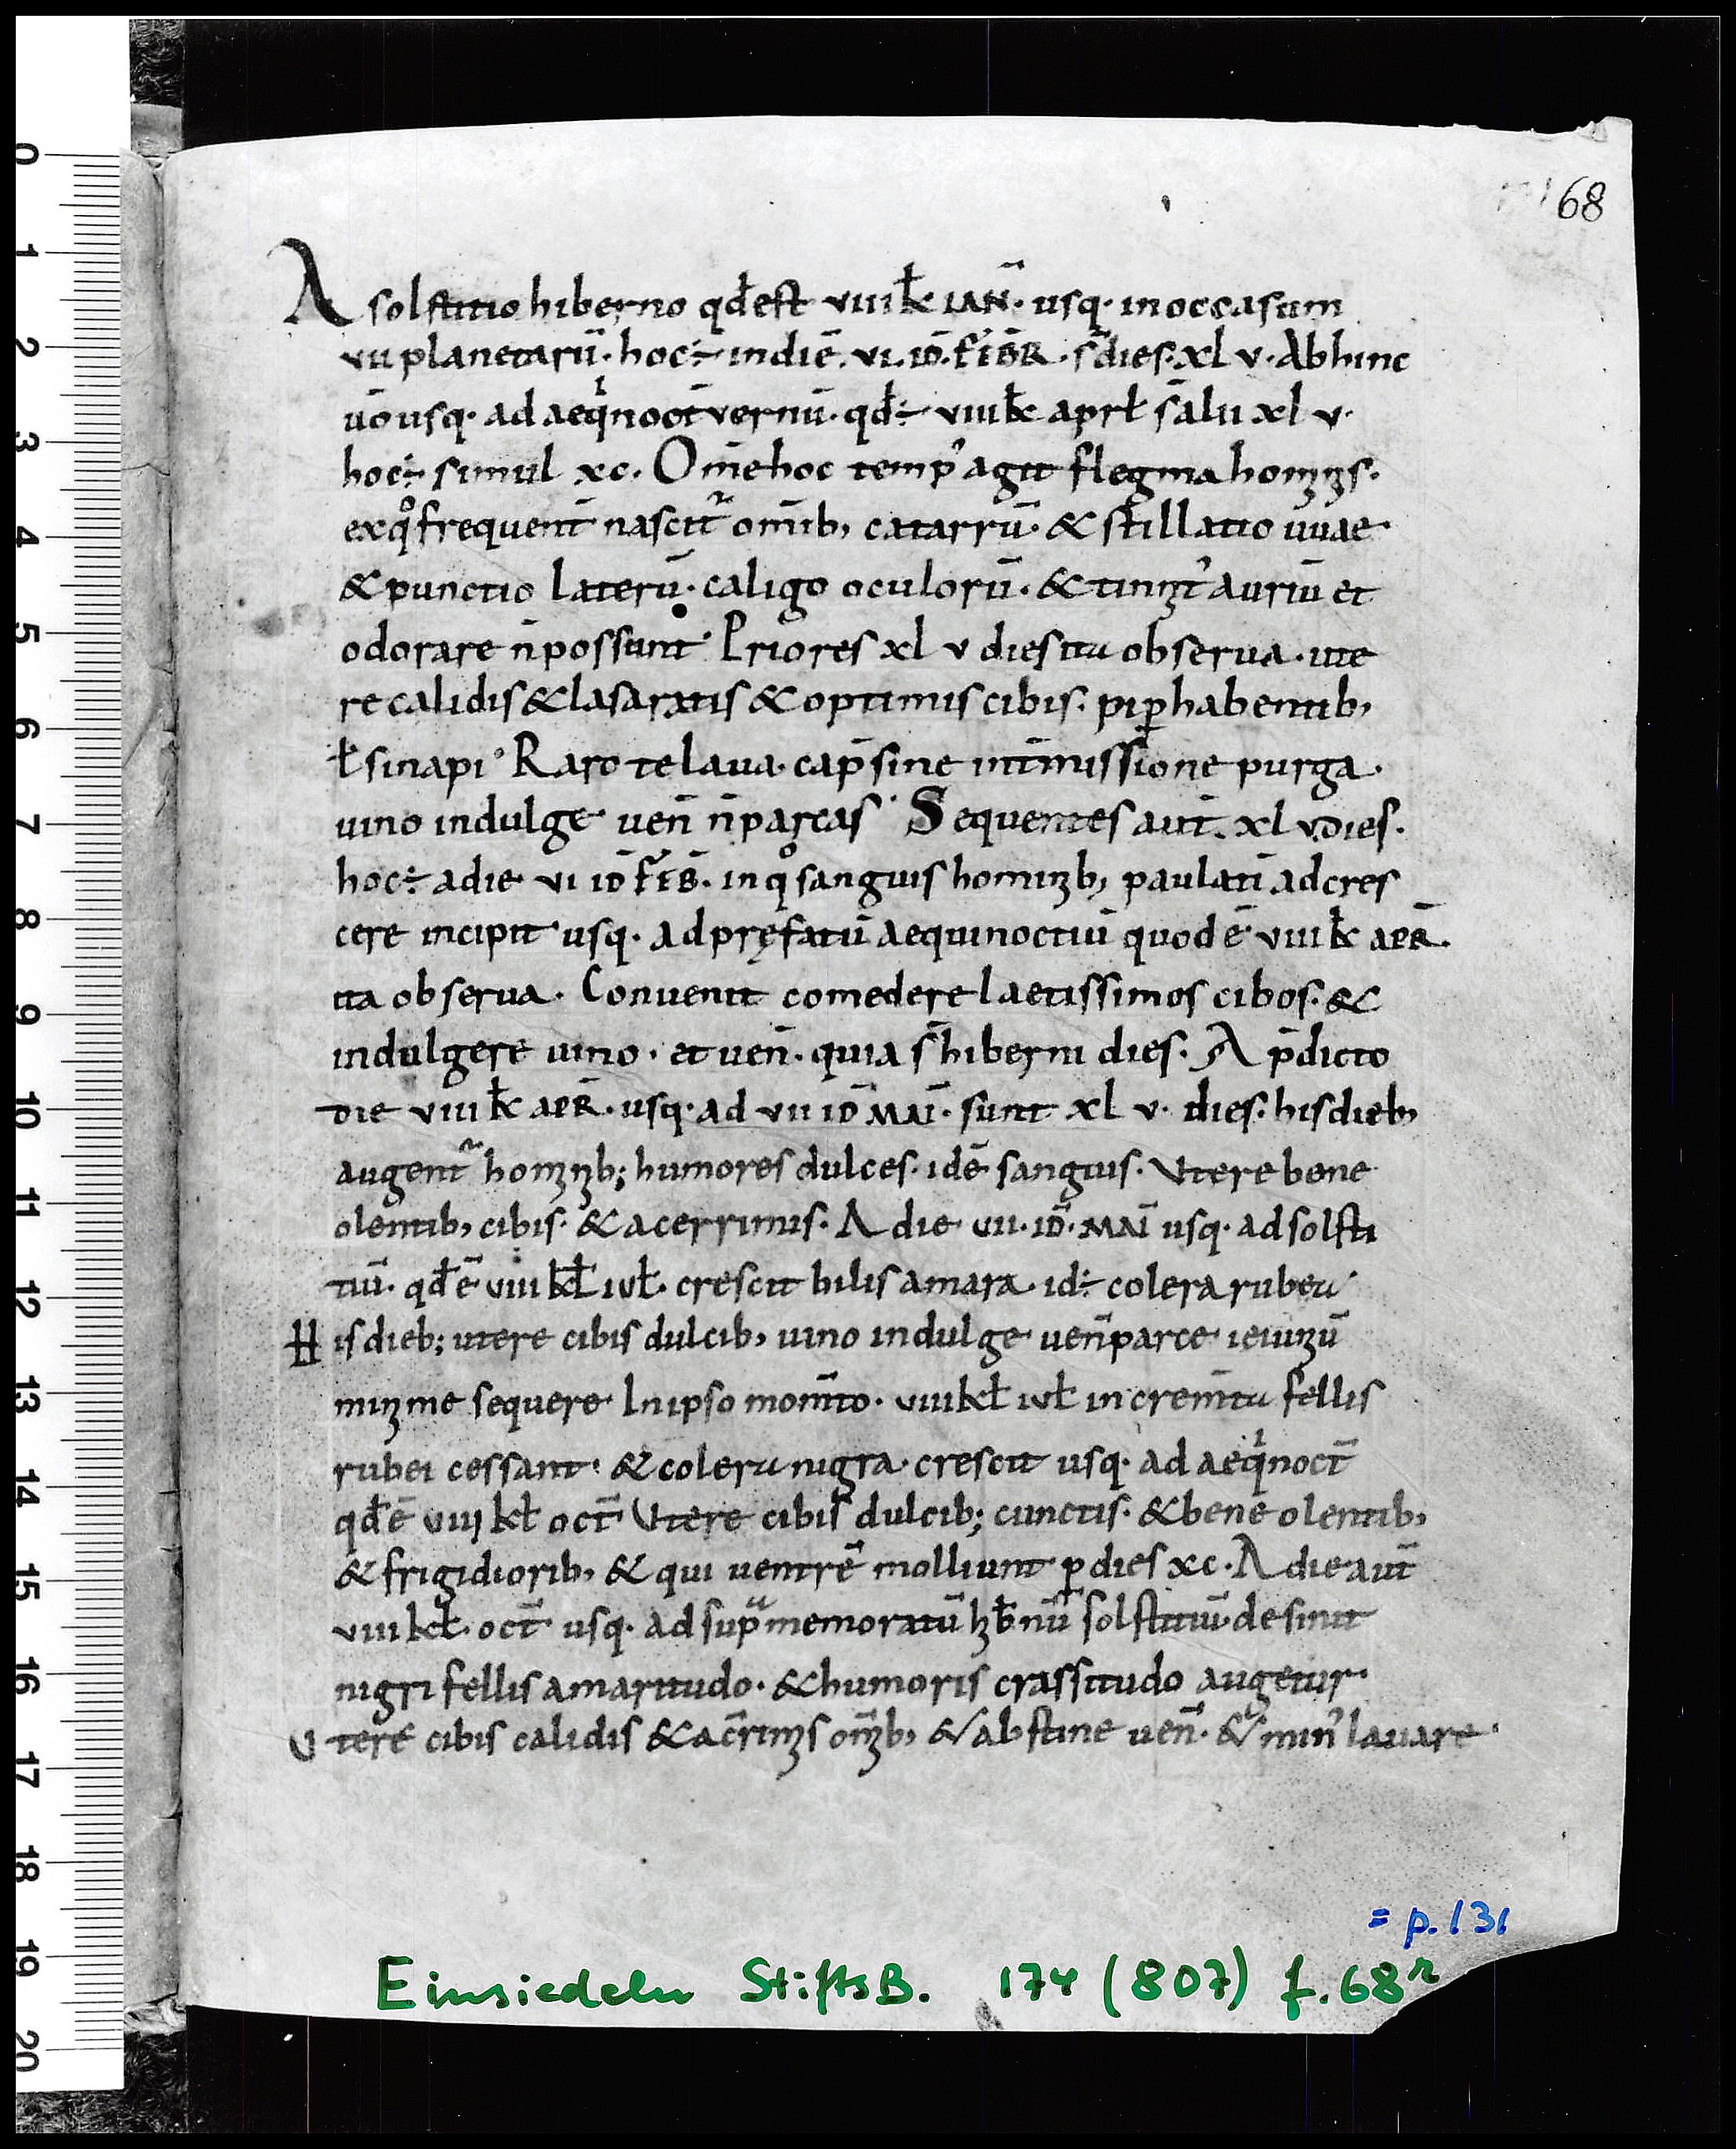 68
A solstitio hiberno qđ est viii k̄ IAN̄· usq· in occasum
vii planetarū· hoc ÷ in diē· vi· ID̄· FEBR̄· s̄ dies· xl v· Abhinc
ūo usq· ad aeqⁱnoct̄ vernū· qđ ÷ viii k̄ apr̄l s̄ alii xl v·
hoc ÷ simul xc· Om̄e hoc temp' agit flegma hominis·
ex qͦ frequent̄ nascit̃ om̄ib; catarrū· & stillatio uuae
& punctio laterū· caligo oculorū· & tinnit' auriū et
odorare n̄ possunt· Priores xl v dies ita obserua· ute
re calidis & lasaratis & optimis cibis· pip̱ habentib;
ł sinapi· Raro te laua· cap̄ sine int̄missione purga·
uino indulge uen̄ n̄ parcas· Sequentes aut̄· xl v dies·
hoc ÷ a die vi ID̄ FEB̄· in qͦ sanguis hominib; paulatī adcres
cere incipit usq· ad pręfatū aequinoctiū quod ē viii k̄ APR̄·
ita obserua· Conuenit comedere laetissimos cibos· &
indulgere uino· et uen̄· quia s̄ hiberni dies· A p̄dicto
die viii k̄ APR̄· usq· ad vii ID̄ MAĪ· sunt xl v· dies· his dieb;
augent̃ hominib; humores dulces· idē sanguis· Vtere bene
olentib; cibis· & acerrimis· A die vii· ID̄· MAĪ usq· ad solsti
tiū· qđ ē viii kł iuł· crescit bilis amara· id ÷ colera rubea
His dieb; utere cibis dulcib; uino indulge uen̄ parce ieiuniū
minime sequere In ipso mom̄to· viii kł iuł increm̄ta fellis
rubei cessant· & colera nigra crescit usq· ad aeqⁱnoct̄
qđ ē viij kł oct̄ Vtere cibis dulcib; cunctis· & bene olentib;
& frigidiorib; & qui uentrē molliunt p̱ dies xc· A die aut̄
viii kł· oct̄ usq· ad supᵃ memoratū hib̄nū solstitiū· desinit
nigri fellis amaritudo· & humoris crassitudo augetur·
Vtere cibis calidis & ac̄rimis om̄ib; & abstine uen̄· & min' lauare·
= p. 131
Einsiedeln StiftsB. 174 (807) f. 68r
0
1
2
3
4
5
6
7
8
9
10
11
12
13
14
15
16
17
18
19
20